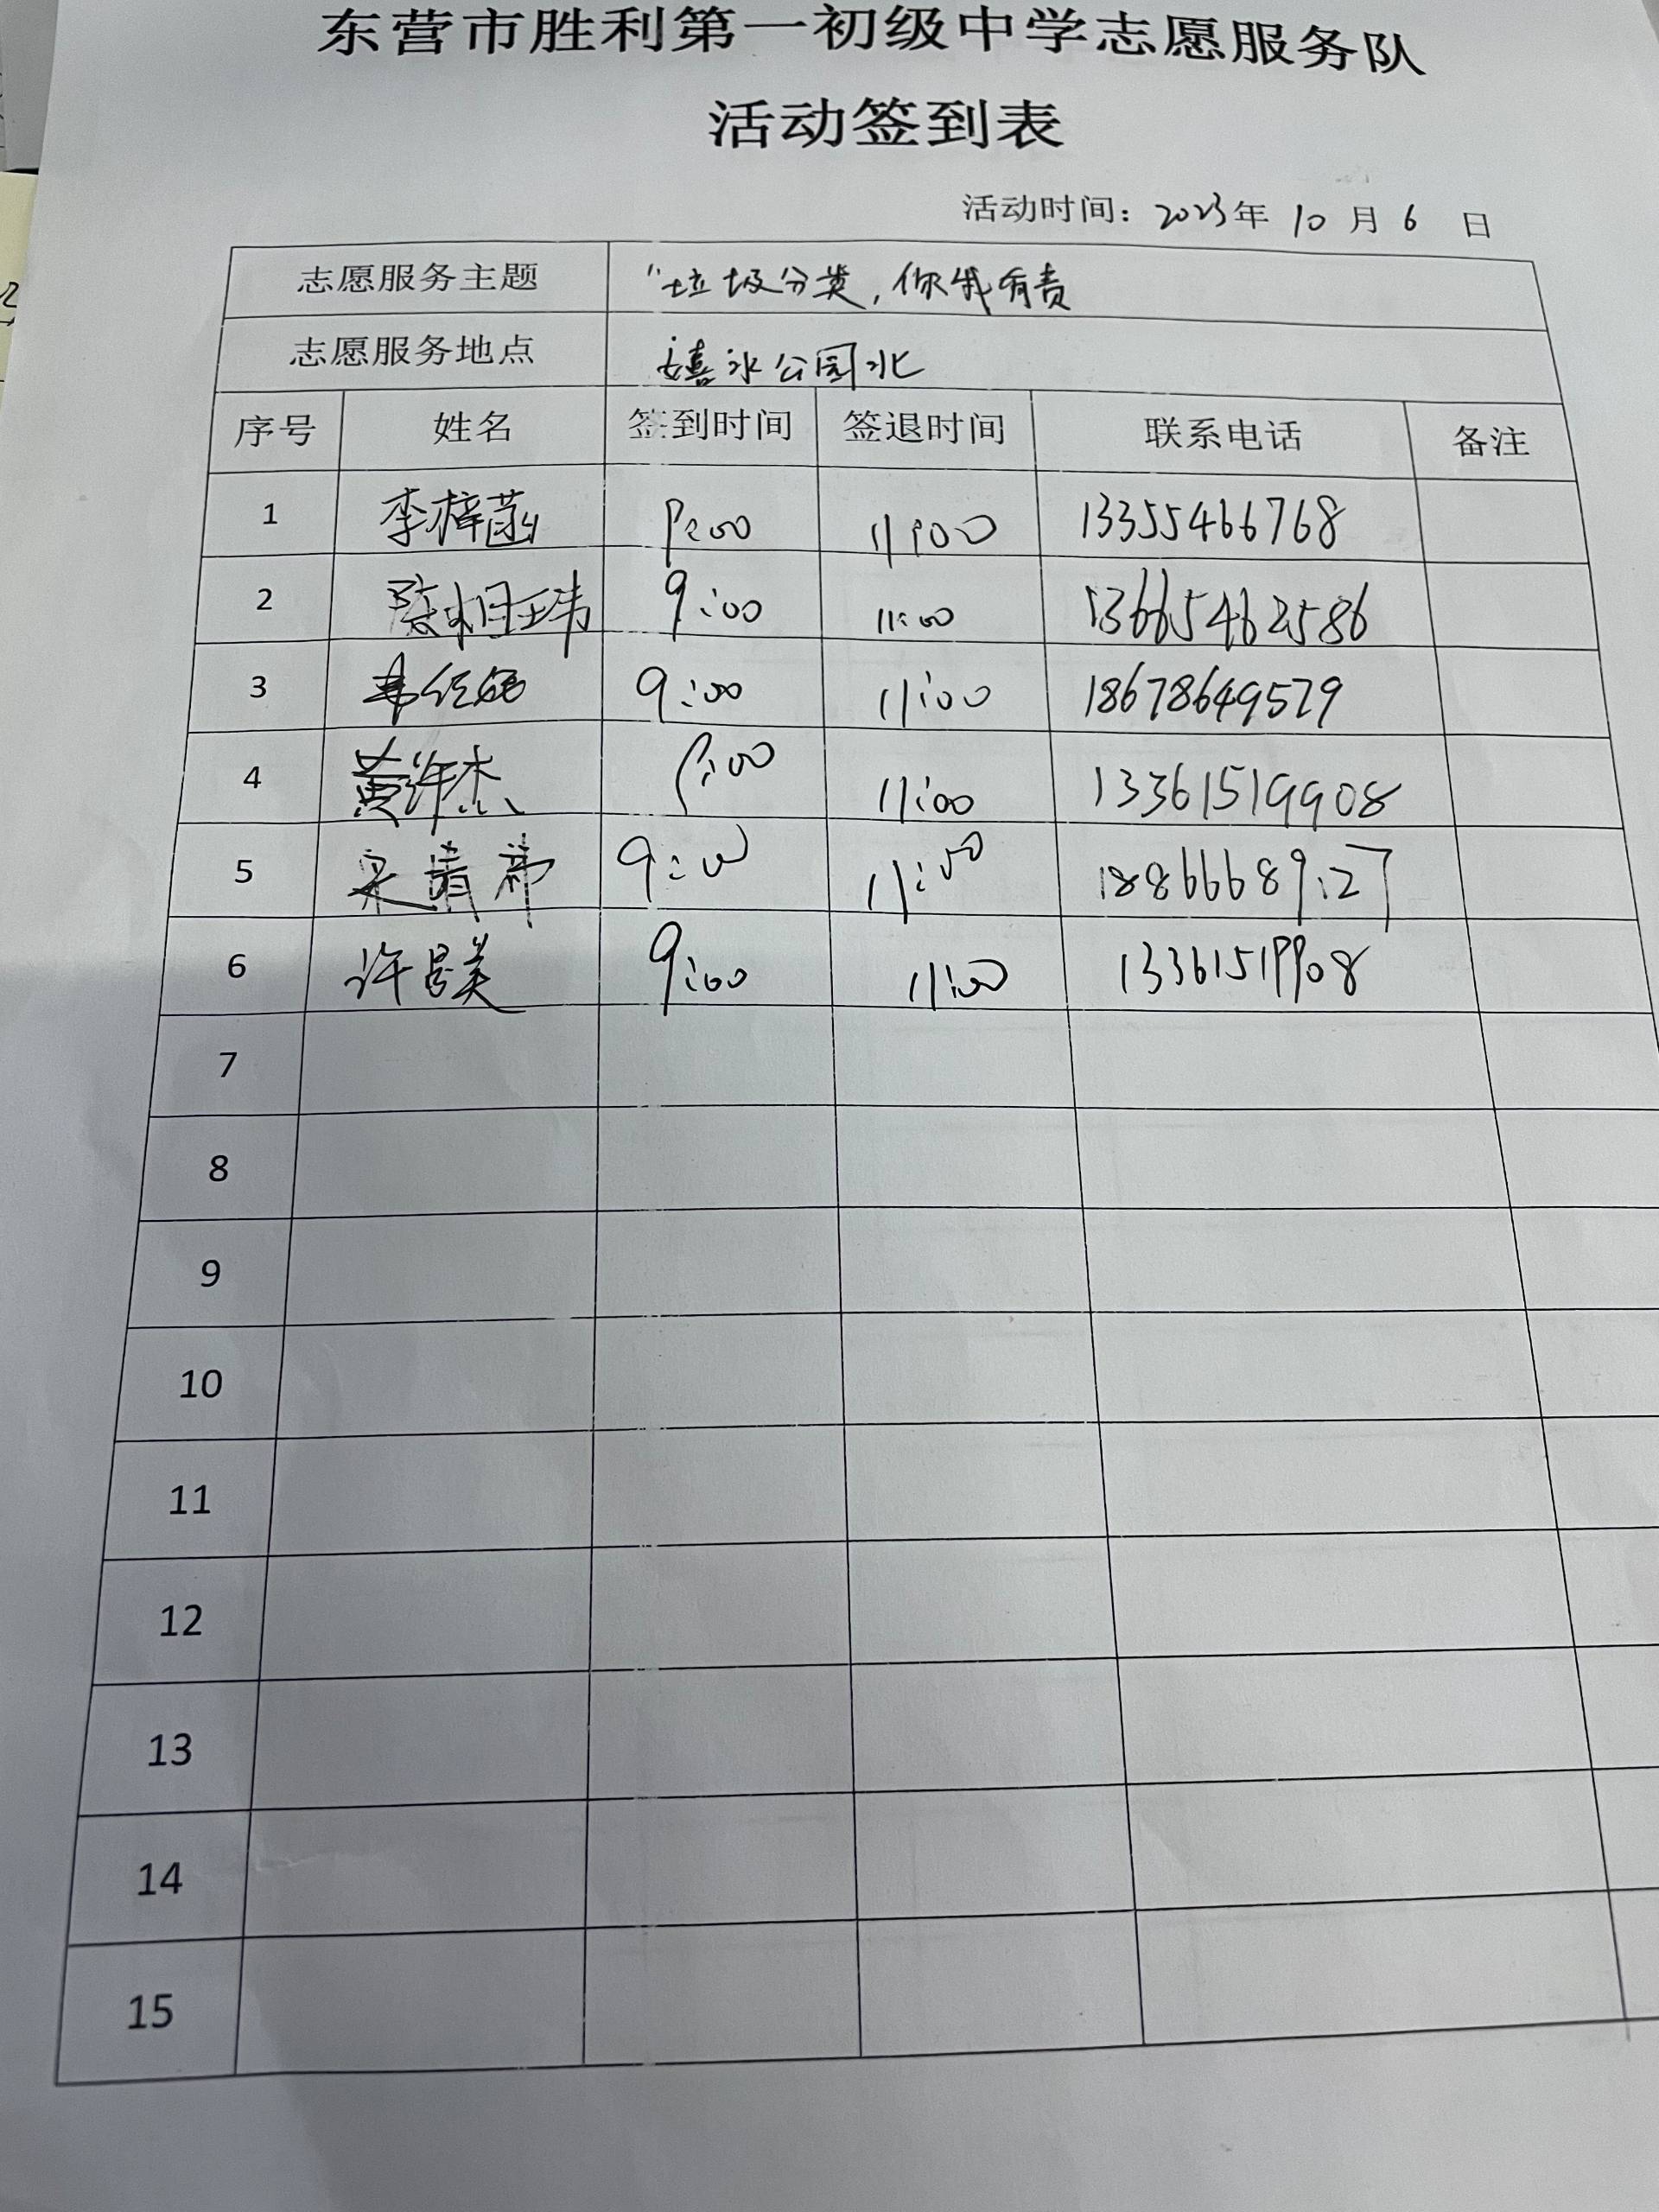 东营市胜利第一初级中学志愿服务队
活动签到表
活动时间：2023年 10 月 6 日
志愿服务主题 "垃圾分类，你我有责
志愿服务地点 嬉水公园北
序号 姓名 签到时间 签退时间 联系电话 备注
1 李梓菡 9:00 11:00 13355466768
2 9:00 11:00 13665462586
3 9:00 11:00 18678649579
4 黄许杰 9:00 11:00 13361519908
5 9:00 11:00 18866689127
6 许昌美 9:00 11:00 13361519908
7
8
9
10
11
12
13
14
15